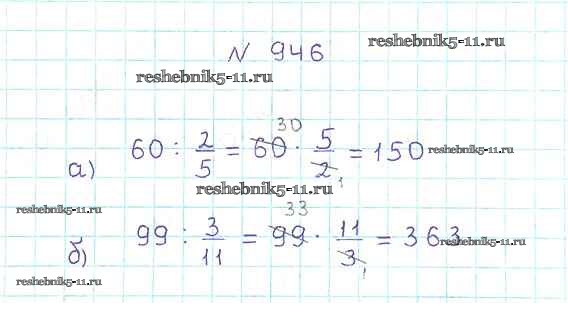 N 946
reshebnik5-11.ru
reshebnik5-11.ru
30
а) 60 : 2/5 = 60 · 5/2 = 150 reshebnik5-11.ru
1
reshebnik5-11.ru
reshebnik5-11.ru
33
б) 99 : 3/11 = 99 · 11/3 = 363 reshebnik5-11.ru
1
reshebnik5-11.ru